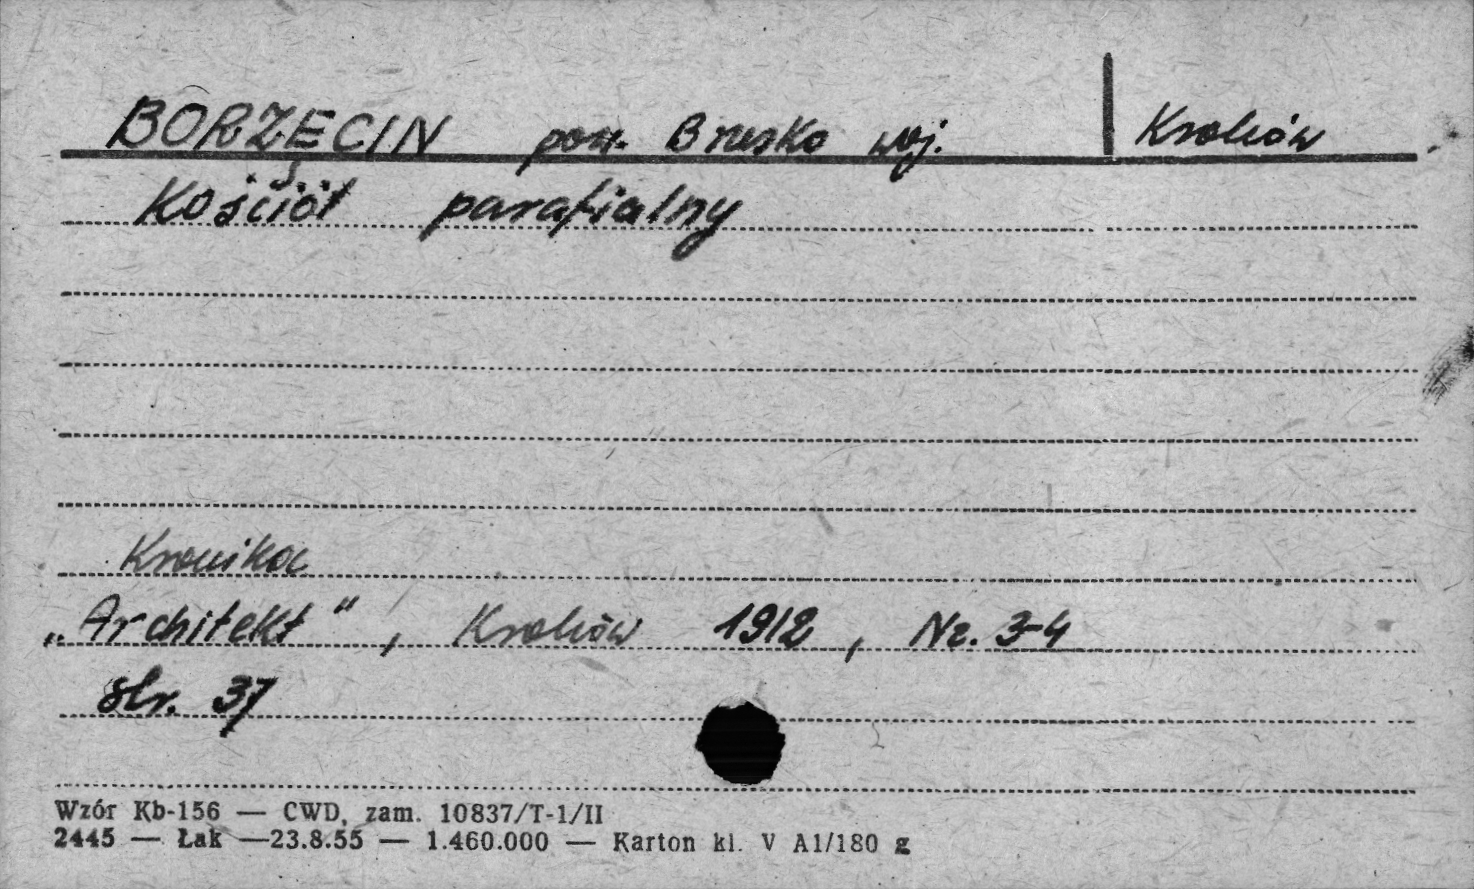 BORZĘCIN pow. Brzesko woj. Kraków
Kościół parafialny
Kronika
„Architekt", Kraków 1912, Nr. 3-4
str. 37
Wzór Kb-156 — CWD, zam. 10837/T-1/II
2445 — Łak —23.8.55 — 1.460.000 — Karton kl. V A1/180 g